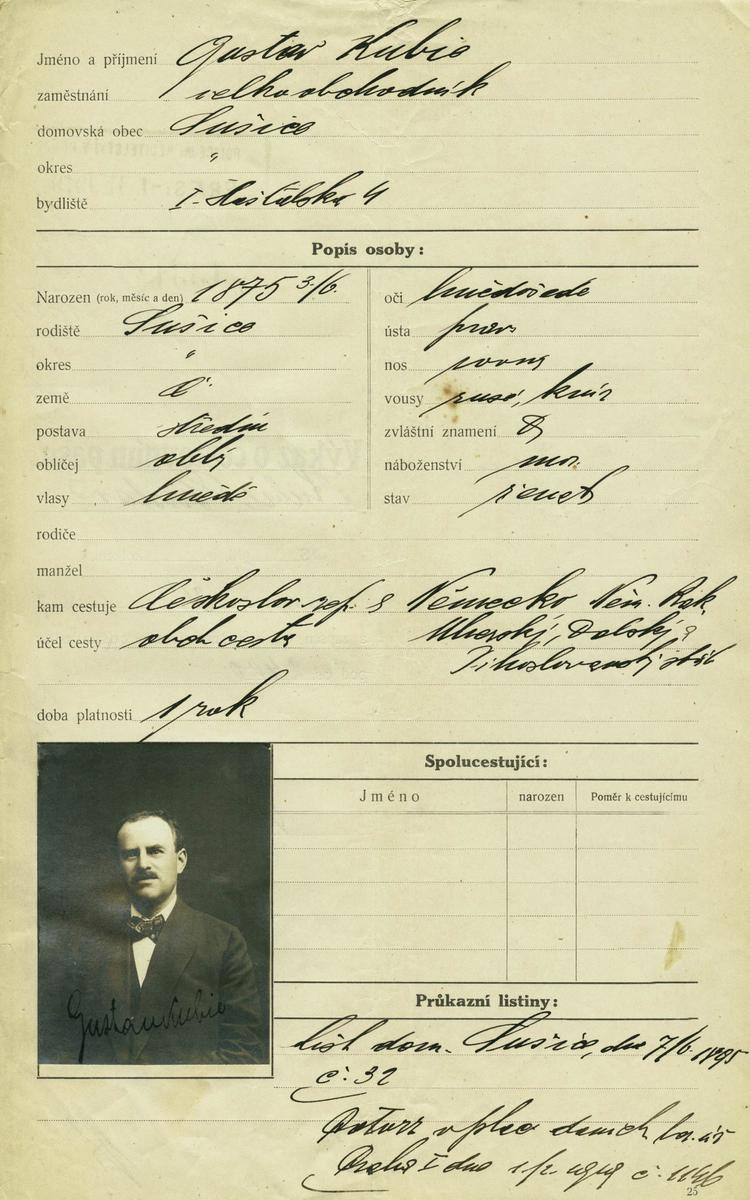 Jméno a příjmení Gustav Kubie
zaměstnání velkoobchodník
domovská obec Sušice
okres "
bydliště I. Haštalská 4
Popis osoby:
Narozen (rok, měsíc a den) 1875 3/6.
rodiště Sušice
okres "
země Č.
postava střední
obličej oblý
vlasy hnědé
oči hnědošedé
ústa prav.
nos rovný
vousy rusé, knír
zvláštní znamení
náboženství
stav ženat
rodiče
manžel
kam cestuje Českoslov. rep. Německo, Něm. Rak.
účel cesty obch. cesta Uherský, Polský
Jihoslovanský stát
doba platnosti 1 rok
Spolucestující:
Jméno narozen Poměr k cestujícímu
Gustav Kubie
Průkazní listiny:
list dom. Sušice, dne 7/6 1895
č. 32
Potvrz. o plac. daních
Praha I dne č.
25